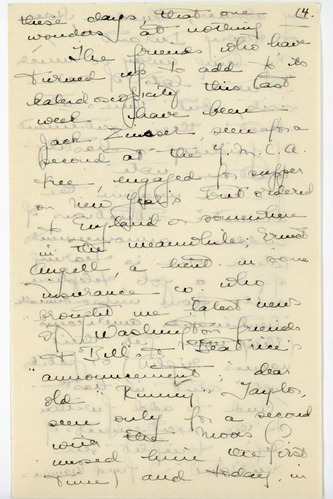 14.
these days, that one
wonders at nothing
The friends who have
turned up to add to its
kaleidoscopicity this last
week have been
Jack , seen for a
second at the Y.M.C.A.
, engaged for supper
on New Year's but ordered
to England or somewhere
in the meanwhile; Ernest
Angell, a lieut in some
insurance co. who
brought me latest news
of Washington friends
+ Bill's + Beatrice's
"announcement" dear
old "Rummy" Taylor,
seen only for a second
with the Moas (?)
missed him the first
time and today in